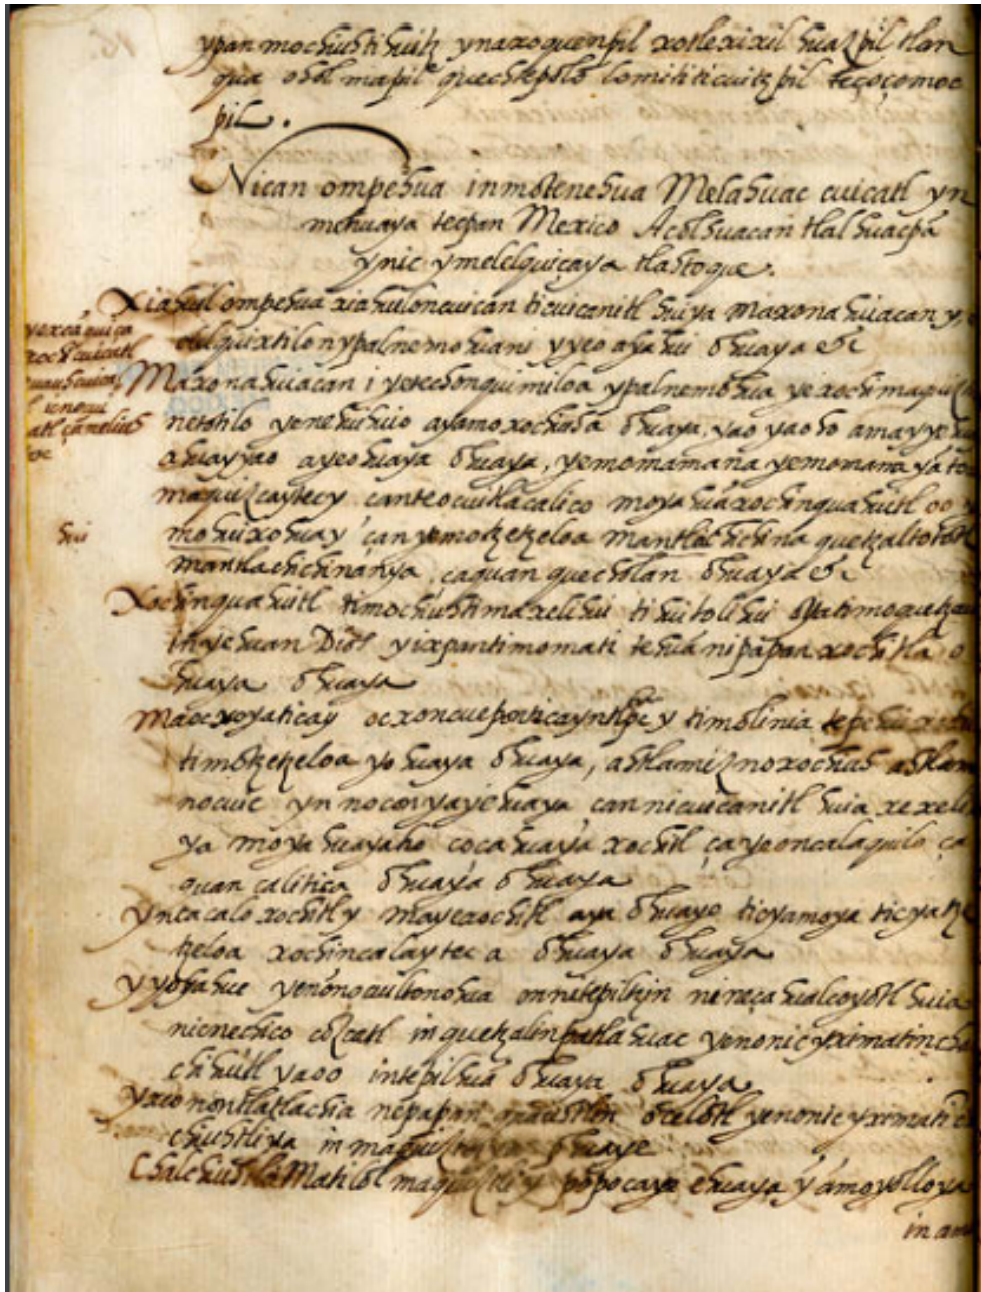 ypan mochiuhtihuitz ynaxoquenpil xotlexixil huaz pil tlan
qua olol mapil quechtepolo lomititicuitz pil teçoçomoc
pil.
Nican ompehua in motenehua Melahuac cuicatl yn
mehuaya tecpan Mexico Acolhuacan tlalhuacpā
ynic ymelelquiçaya tlahtoque.
Xiahuil ompehua xiahuiloncuican ticuicanitl huiya maxonahuiacan y
elelquixtilon ypalnemohuani yyeo ayahui ohuaya etc
Maxonahuiacan i yetechonquimiloa ypalnemohua yexochimaquiz
netotilo yenehuihuio ayamoxochiuha ohuaya, yao yaoho amayye
ahuayyao ayeo huaya ohuaya, yemomamana yemomana yā
maquizcaytecy canteocuitlacalico moyahuaxochinquahuitl oo
mohuixohuay çanyemotzetzeloa mantlachichina quetzaltototl
mantlachichinanya çaquan quecholan ohuaya etc
Xochinquahuitl timochiuhtimaxelihui tihuitolihui oyatimoquetzaco
in yehuan Dios yixpantimomati tehuā nipāpaa xochitla o
huaya ohuaya
Maocxoyaticay ocxoncuepontica yntlpc y timolinia tepehui
timotzetzeloa yohuaya ohuaya, ahtlamiz noxochiuh ahtlam
nocuic yn noconyayehuaya can nicuicanitl huia xexeli
ya moyahuayaho coçahuaya xochitl çayeoncalaquilo ça
quan calitica ohuaya ohuaya
Yncacaloxochitly mayexochitl aya ohuaye ticyamoya ticyatze
tzeloa xochincalaytec a ohuaya ohuaya
Yyoyahue yenonocuiltonohua onnitepiltzin nineçahualcoyotl huia
nicnechico cozcatl in quetzalinpatlahuac yenonicyximatin cha
chihuitl yaoo intepilhuā ohuaya ohuaya
Yxconontlatlachia nepapan quauhtlin ocelotl yenonicyximati
chiuhtliya in maquiztliya ohuaye
Chalchiuhtla Matilol maquiztli popocaya ehuaya y āmoyolloya
in am
hui